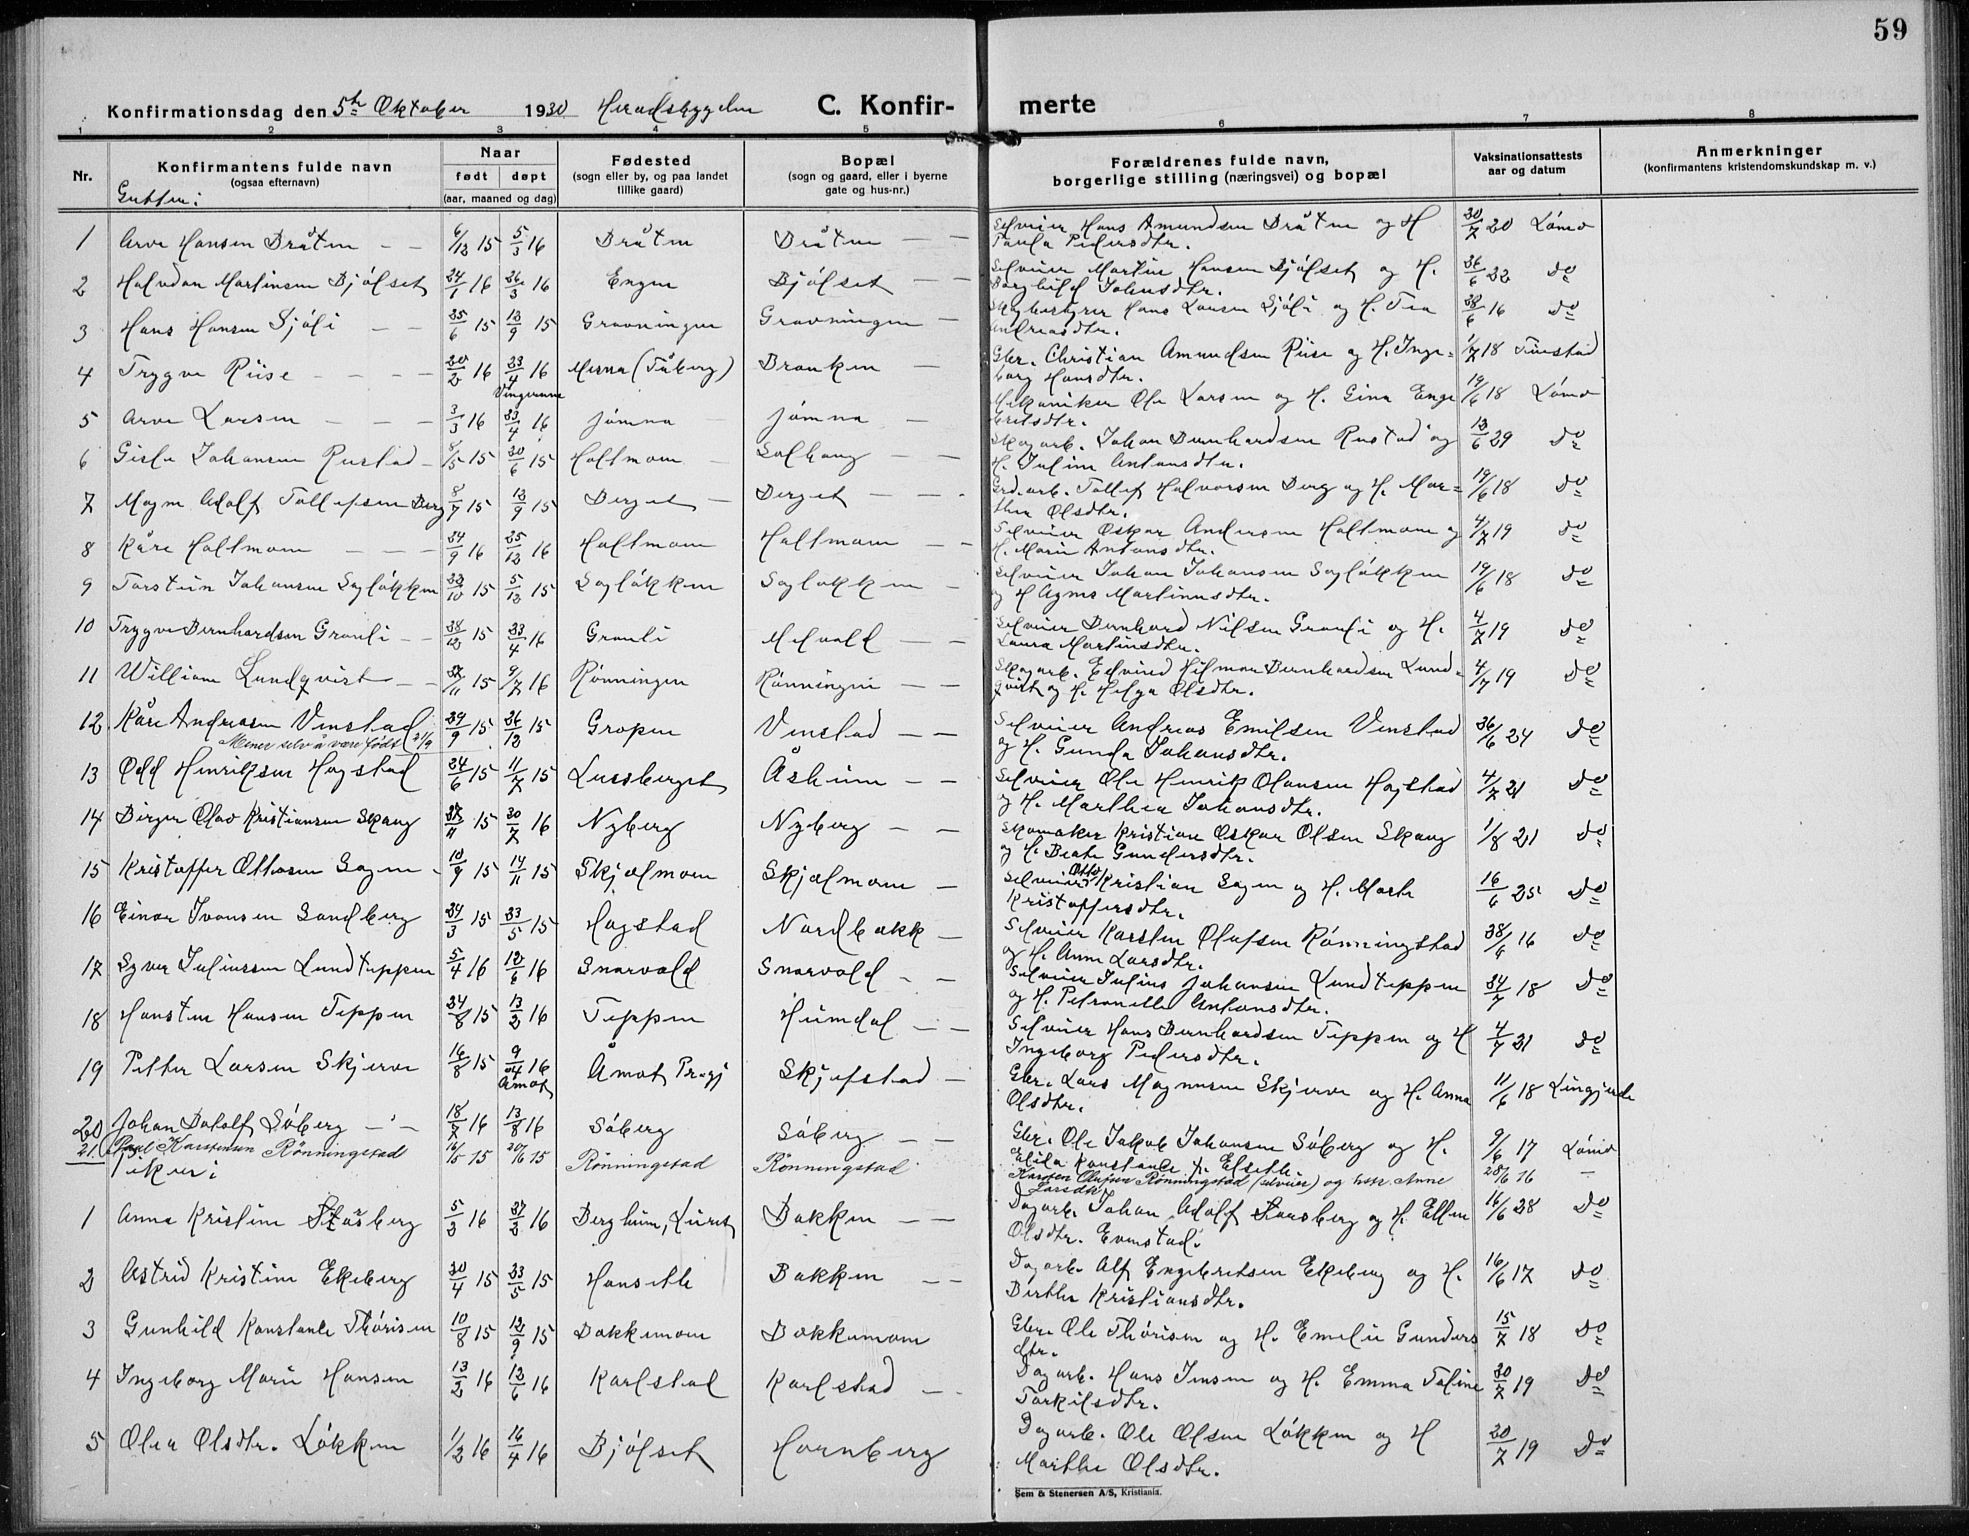 59
Konfirmationsdag den 5te Oktober 1930 Heradsbygden C. Konfir- merte
1 2 3 4 5 6 7 8
Nr. Konfirmantens fulde navn (ogsaa efternavn) Naar født døpt (aar, maaned og dag) Fødested (sogn eller by, og paa landet tillike gaard) Bopæl (sogn og gaard, eller i byerne gate og hus-nr.) Forældrenes fulde navn, borgerlige stilling (næringsvei) og bopæl Vaksinationsattests aar og datum Anmerkninger (konfirmantens kristendomskundskap m. v.)
Gutter:
1 Arve Hansen Bråten 6/12 15 5/3 16 Bråten Bråten Selveier Hans Amundsen Bråten og H. Paula Pedersdtr. 30/7 20 Lømo
2 Halvdan Martinsen Bjølset 24/1 16 26/3 16 Engen Bjølset Selveier Martin Hansen Bjølset og H. Borghild Johnsdtr. 26/6 22 do
3 Hans Hansen Sjøli 25/6 15 12/9 15 Gravningen Gravningen Hans Larsen Sjøli og H. Tea Andreasdtr. 28/6 16 do
4 Trygve Riise 20/2 16 23/4 16 Mesna (Fåberg) Branken Gbr. Christian Amundsen Riise og H. Ingeborg Hansdtr. 1/7 18
5 Arve Larsen 3/3 16 23/4 16 Jømna Jømna Mekaniker Ole Larsen og H. Gina Engebretsdtr. 19/6 18 Lømo
6 Gisle Johansen Rustad 8/5 15 20/6 15 Holtmoen Solhaug Skogarb. Johan Bernhardsen Rustad og H. Juline Antonsdtr. 13/6 29 do
7 Magne Adolf Tollefsen Berg 8/7 15 12/9 15 Berget Berget Grd.arb. Tollef Halvorsen Berg og H. Marthea Olsdtr. 19/6 18 do
8 Kåre Holtmoen 24/9 16 25/12 16 Holtmoen Holtmoen Selveier Oskar Andersen Holtmoen og H. Marie Antonsdtr. 4/7 19 do
9 Torstein Johansen Sagløkken 22/10 15 5/12 15 Sagløkken Sagløkken Selveier Johan Johansen Sagløkken og H Agnes Martinusdtr. 19/6 18 do
10 Trygve Bernhardsen Granli 28/12 15 23/4 16 Granli Melvold Selveier Bernhard Nilsen Granli og H. Laura Martinsdtr. 4/7 19 do
11 William Lundqvist 27/11 15 9/7 16 Rønningen Rønningen Skogarb. Edvind Hilmar Bernhardsen Lundqvist og H. Helga Olsdtr. 4/7 19 do
12 Kåre Andreasen Vinstad 29/9 15 26/12 15 Gropen Vinstad Selveier Andreas Emilsen Vinstad og H. Gunda Johansdtr. 26/6 24 do
Mener selv å være født 21/9
13 Odd Henriksen Hagstad 24/6 15 11/7 15 Lussberget Åsheim Selveier Ole Henrik Olausen Hagstad og H. Marthea Johansdtr. 4/7 21 do
14 Birger Olav Kristiansen Skaug 27/11 15 30/7 16 Nyberg Nyberg Skomaker Kristian Oskar Olsen Skaug og H. Beate Gundersdtr. 1/8 21 do
15 Kristoffer Ottosen Sagen 10/9 15 14/11 15 Skjælmoen Skjælmoen Selveier Otto Kristian Sagen og H. Marte Kristoffersdtr. 16/6 25 do
16 Einar Ivansen Sandberg 24/3 15 23/5 15 Hagstad Nordbakk Selveier Karsten Olafsen Rønningstad og H. Anne Larsdtr. 28/6 16 do
17 Syver Juliussen Lundteppen 5/4 16 12/6 16 Snarvold Snarvold Selveier Julius Johansen Lundteppen og H. Petronelle Antonsdtr. 24/7 18 do
18 Hansten Hansen Teppen 24/8 15 13/2 16 Teppen Heimdal Selveier Hans Bernhardsen Teppen og H Ingeborg Pedersdtr. 4/7 21 do
19 Petter Larsen Skjerve 16/8 15 9/4 16 Åmot Åmot Pr.gj Skjefstad Gbr. Lars Magnusen Skjerve og H. Anna Olsdtr. 11/6 18
20 Johan Dotolf Søberg 18/7 16 13/8 16 Søberg Søberg Gbr. Ole Jakob Johansen Søberg og H. Elida Konstanse f. Elseth 9/6 17 Lømo
21. Paul Karstensen Rønningstad 16/5 15 20/6 15 Rønningstad Rønningstad Karsten Olafsen Rønningstad (selveier) og hstr. Anne Larsdtr. 28/6 16
Piker:
1 Anna Kristine Stasberg 5/2 16 27/3 16 Bergheim, Luret Bakken Dagarb. Johan Adolf Stasberg og H. Ellen Olsdtr. Evenstad. 16/6 28 do
2 Astrid Kristine Ekeberg 20/4 15 23/5 15 Hanseth Bakken Dagarb. Alf Engebretsen Ekeberg og H. Birthe Kristiansdtr. 16/6 17 do
3 Gunhild Konstanse Thørisen 10/8 15 12/9 15 Bakkemoen Bakkemoen Gbr. Ole Thørisen og H. Emelie Gundersdtr. 15/7 18 do
4 Ingeborg Marie Hansen 13/2 16 12/6 16 Karlstad Karlstad Dagarb. Hans Jensen og H. Emma Toline Torkilsdtr. 30/7 19 do
5 Olea Olsdtr. Løkken 1/2 16 16/4 16 Bjølset Hornberg Dagarb. Ole Olsen Løkken og H Marthe Olsdtr. 30/7 19 do
Sem & Stenersen A/S, Kristiania.